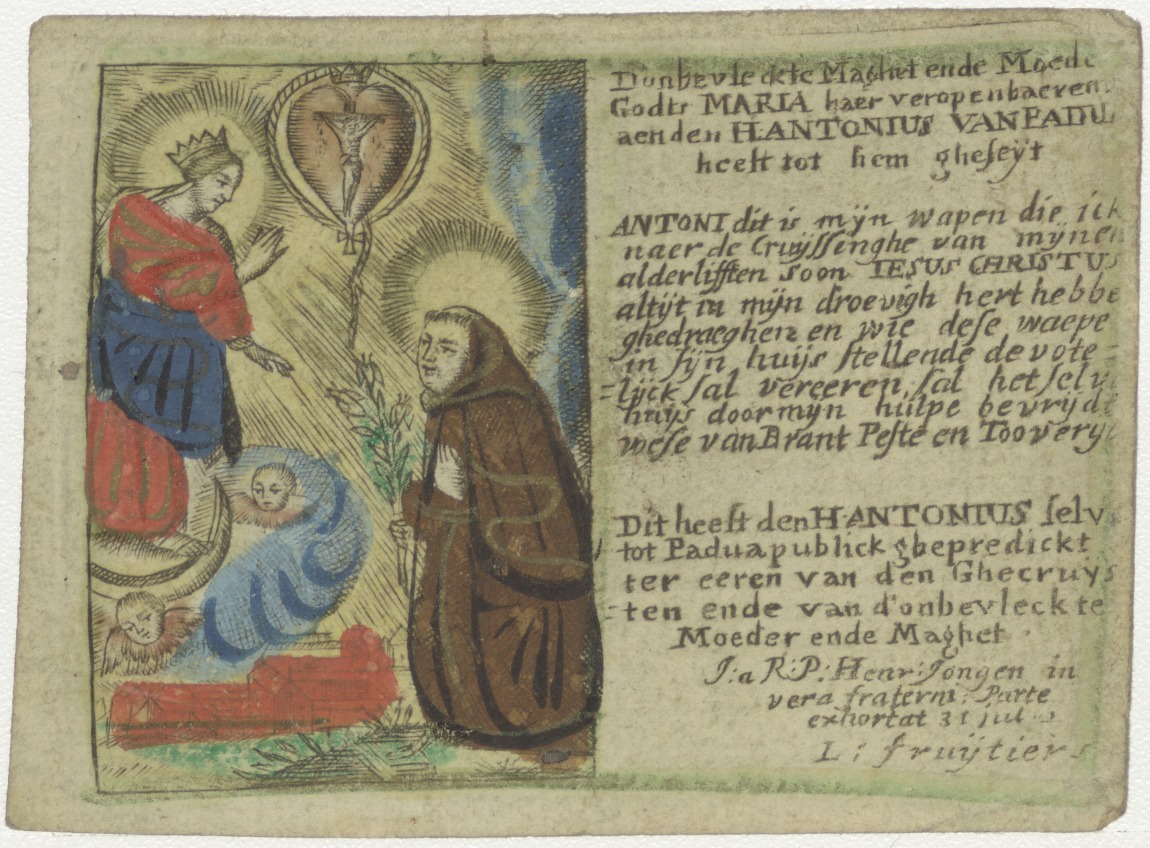 D'onbevleckte Maghet ende Moede
Godts MARIA haer veropenbaeren
aenden H.ANTONIUS VAN PADU
heeft tot hem gheseÿt
ANTONI dit is mÿn wapen die ick
naer de Cruÿssinghe van mÿnen
alderliefften soon IESUS CHRISTUS
altÿt in mÿn droevigh hert hebbe
ghedraeghen en wie dese waepe
in sÿn huÿs stellende devote-
=lÿck sal vereeren, sal het selv
huÿs door mÿn hulpe bevrÿdt
wese van Brant Peste en Toovery
Dit heeft den H.ANTONIUS selv
tot Padua publick ghepredickt
ter eeren van den Ghecruÿs
=ten ende van d'onbevleckte
Moeder ende Maghet
J: a R: P: Henr: Jongen in
vera fraterni: Parte
exhortat 31 jul
L: fruÿtiers